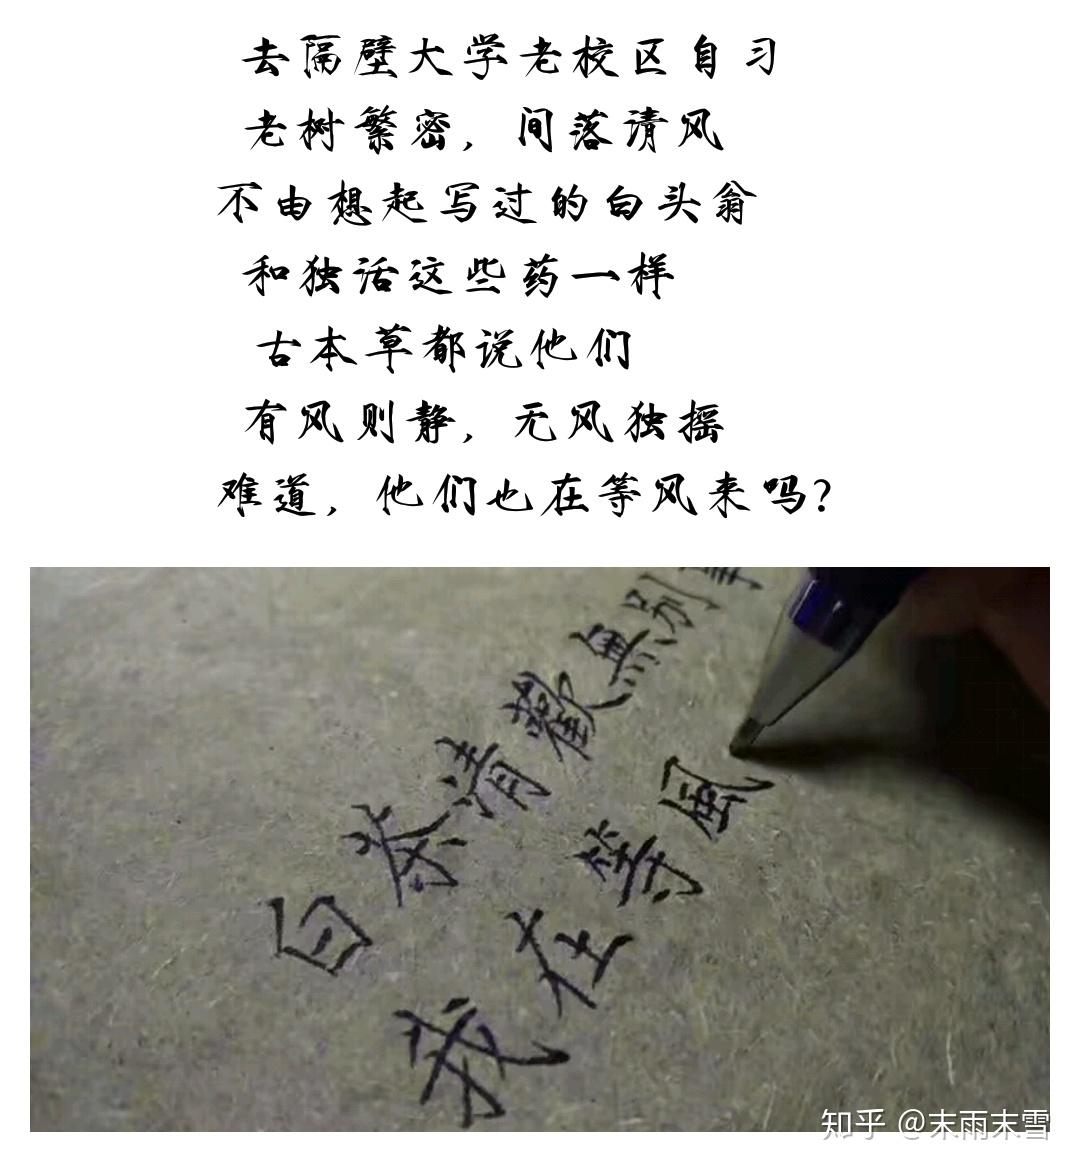 去隔壁大学老校区自习
老树繁密，间落清风
不由想起写过的白头翁
和独活这些药一样
古本草都说他们
有风则静，无风独摇
难道，他们也在等风来吗?
白茶清歡無別事
我在等風
知乎 @末雨末雪